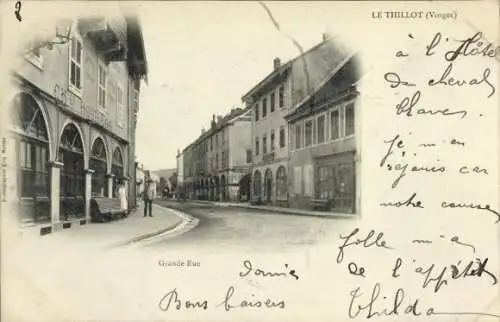 2
LE THILLOT (Vosges)
CAFÉ
à l'Hôtel
du cheval
blanc.
Je m'en
réjouis car
notre course
folle m'a
donné de l'appétit
Grande Rue
Bons baisers
Thilda